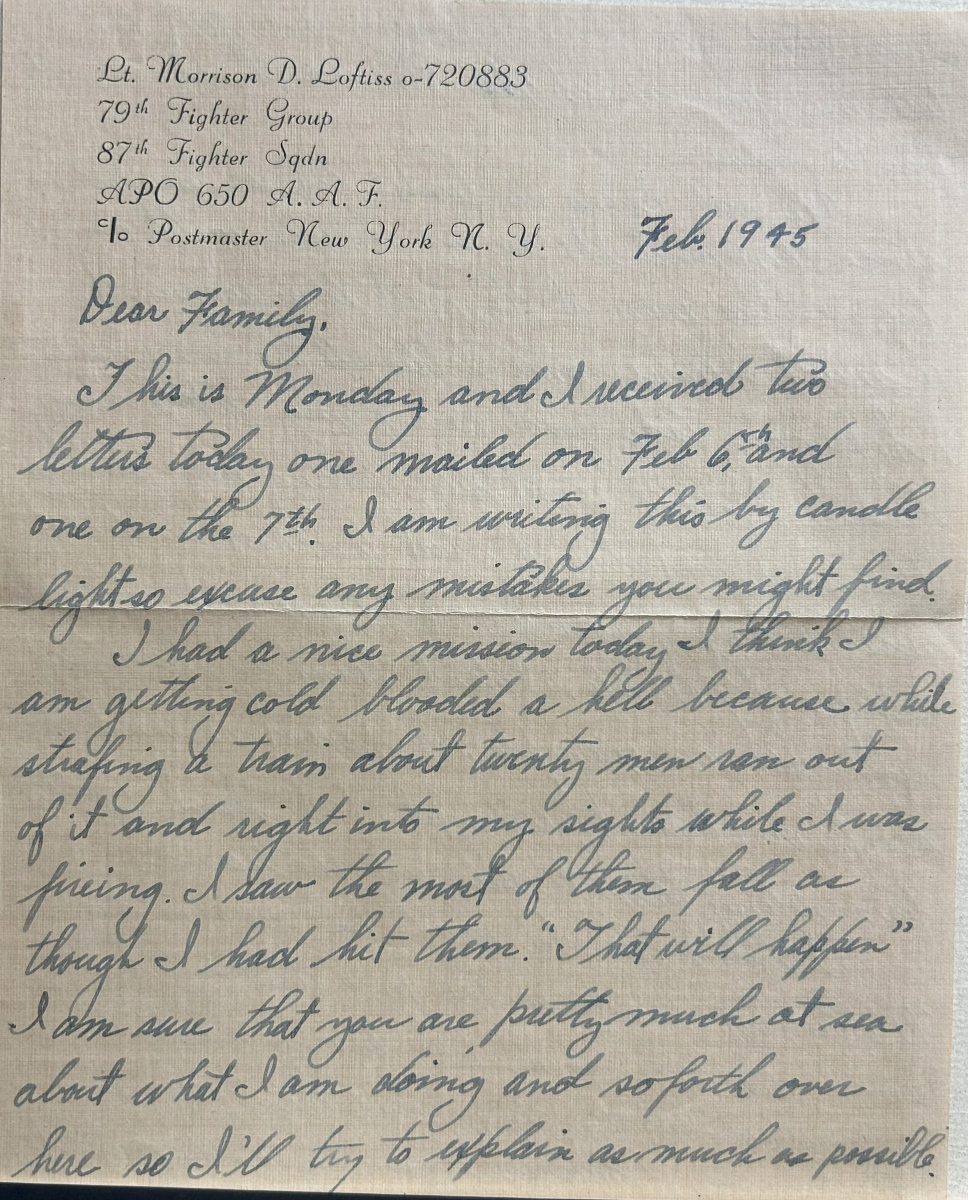 Lt. Morrison D. Loftiss o-720883
79th Fighter Group
87th Fighter Sqdn
APO 650 A. A. F.
c/o Postmaster New York N. Y.
Feb. 1945
Dear Family,
This is Monday and I received two
letters today one mailed on Feb 6th, and
one on the 7th. I am writing this by candle
light so excuse any mistakes you might find.
I had a nice mission today I think I
am getting cold blooded a hell because while
strafing a train about twenty men ran out
of it and right into my sights while I was
fireing. I saw the most of them fall as
though I had hit them. "That will happen"
I am sure that you are pretty much at sea
about what I am doing and so forth over
here so I'll try to explain as much as possible.